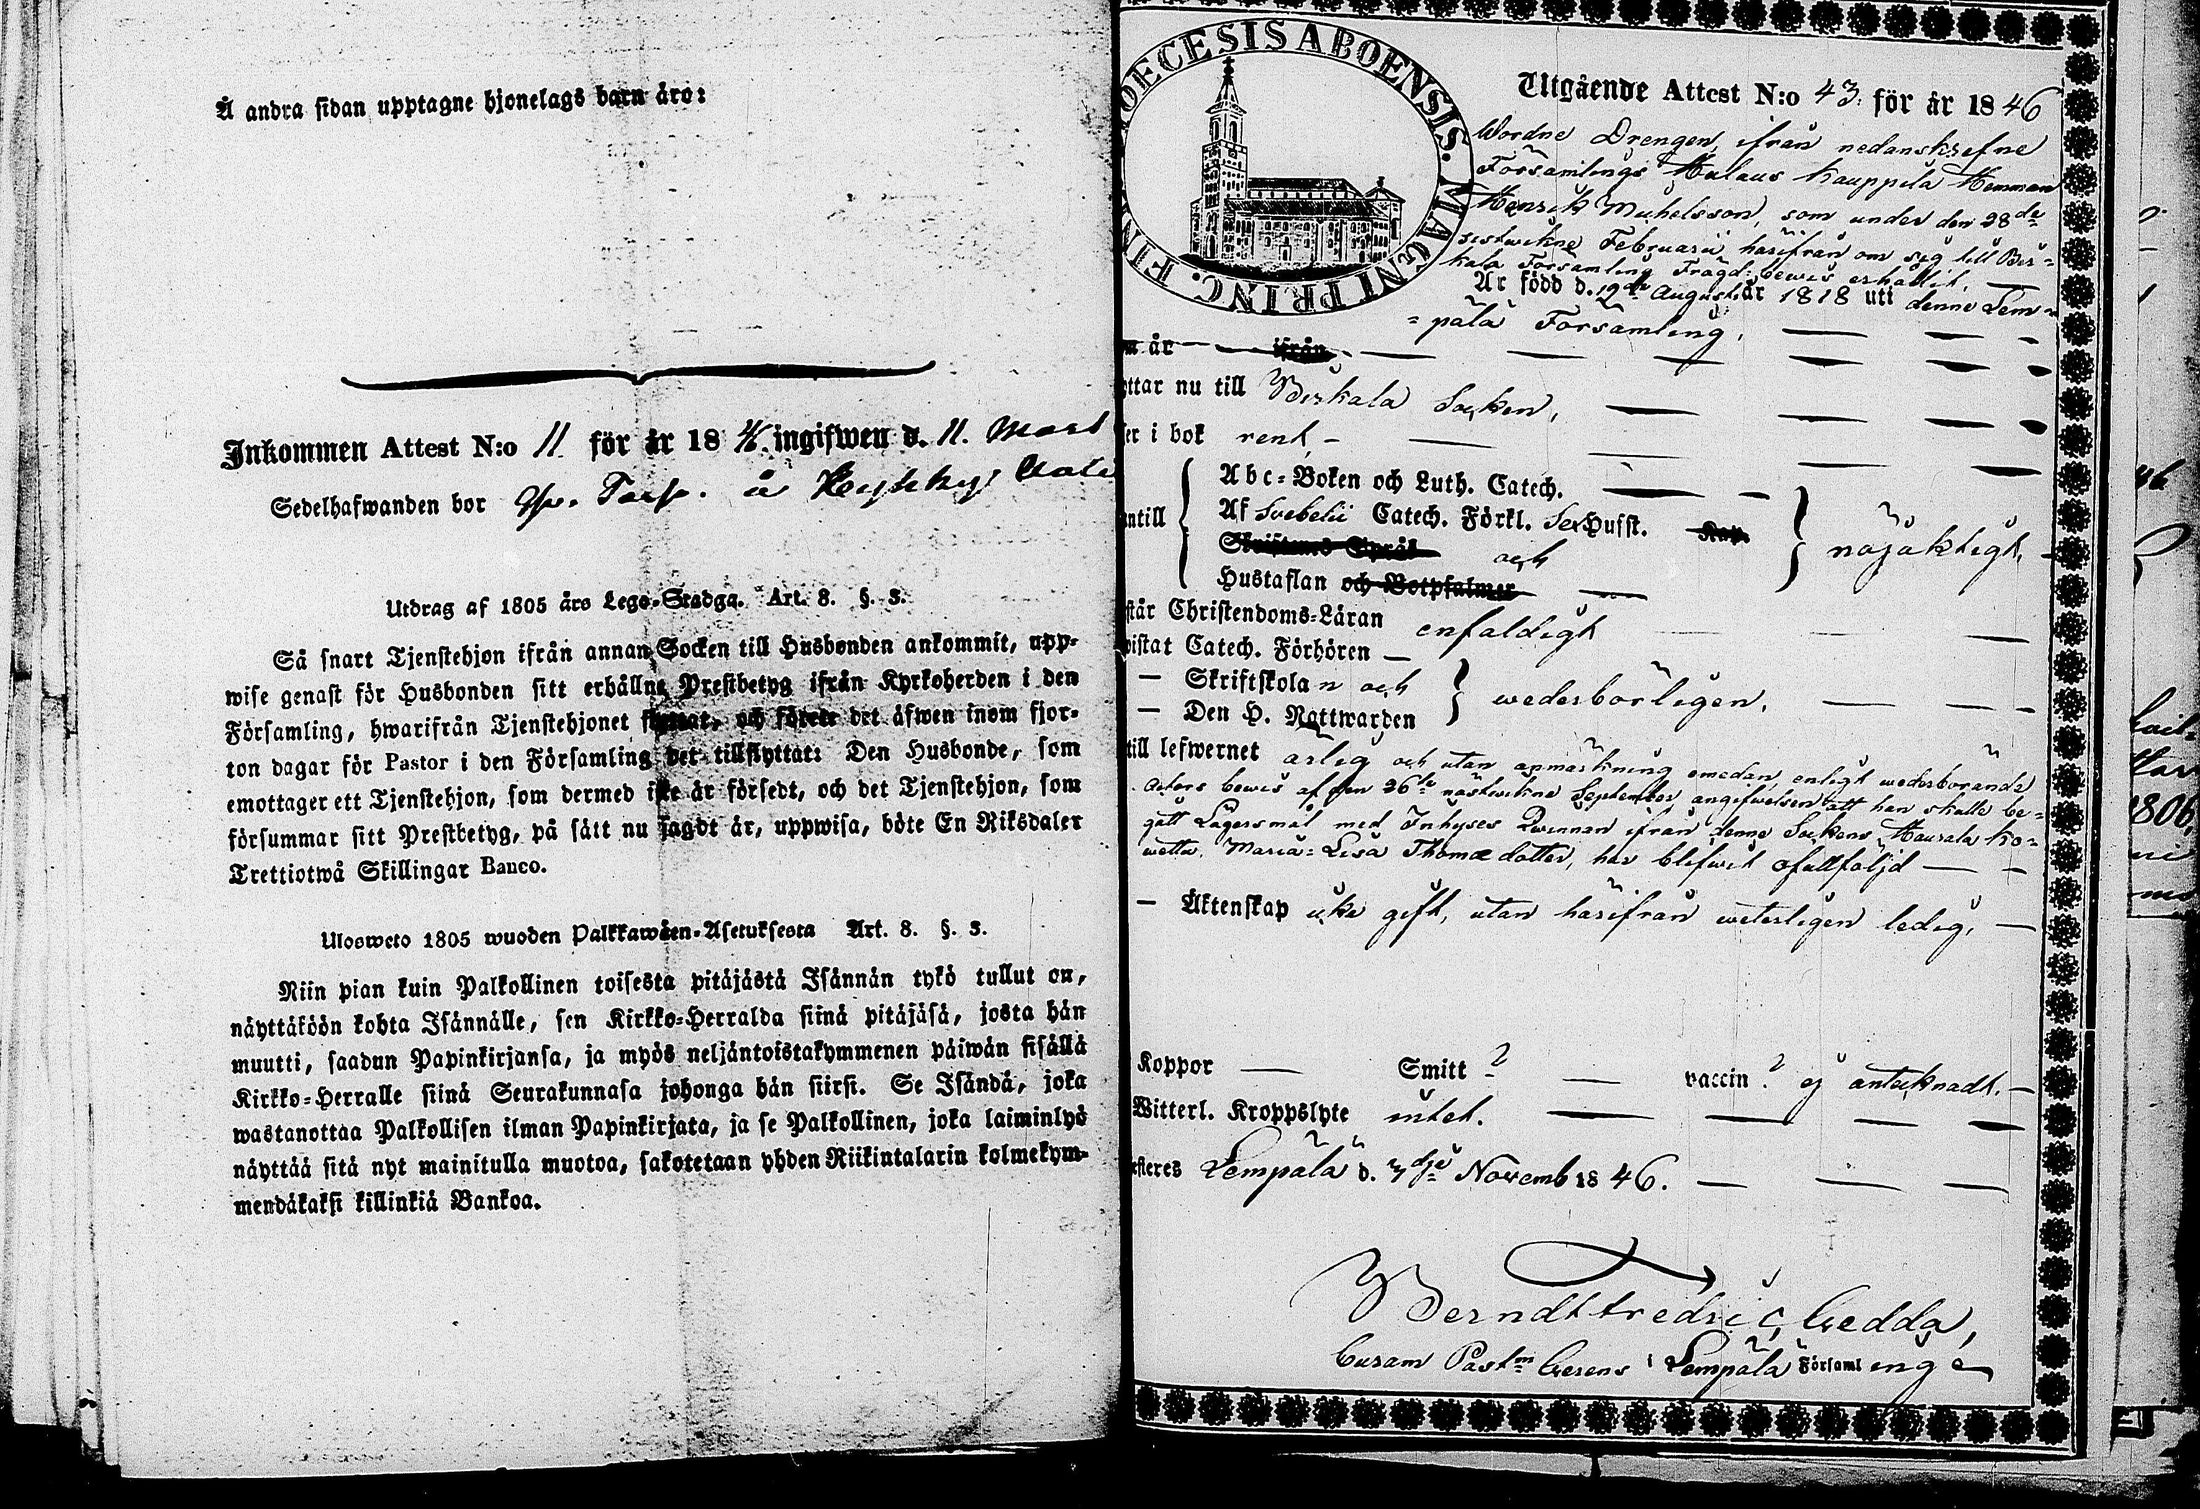 Å andra sidan upptagne hjonelags barn äro:
Inkommen Attest N:o 11 för år 1846. ingifwen d. 11. Mart
Sedelhafwanden bor Torp. å
Utdrag af 1805 års Lego-Stadga. Art. 8. §. 3.
Så snart Tjenstehjon ifrån annan Socken till Husbonden ankommit, upp-
wise genast för Husbonden sitt erhållne Prestbetyg ifrån Kyrkoherden i den
Församling, hwarifrån Tjenstehjonet flyttat, och förete det äfwen inom fjor-
ton dagar för Pastor i den Församling det tillflyttat: Den Husbonde, som
emottager ett Tjenstehjon, som dermed icke är försedt, och det Tjenstehjon, som
försummar sitt Prestbetyg, på sätt nu sagdt är, uppwisa, böte En Riksdaler
Trettiotwå Skillingar Banco.
Ulosweto 1805 wuoden Palkkawäen-Asetuksesta Art. 8. §. 3.
Niin pian kuin Palkollinen toisesta pitäjästä Isännän tykö tullut on,
näyttäköön kohta Isännälle, sen Kirkko-Herralda siinä pitäjäsä, josta hän
muutti, saadun Papinkirjansa, ja myös neljäntoistakymmenen päiwän sisällä
Kirkko-Herralle siinä Seurakunnasa johonga hän siirsi. Se Isändä, joka
wastanottaa Palkollisen ilman Papinkirjata, ja se Palkollinen, joka laiminlyö
näyttää sitä nyt mainitulla muotoa, sakotetaan yhden Riikintalarin kolmekym-
mendäkaksi killinkiä Bankoa.
OECESIS ABOENSIS. MAGNI PRINC. FIN
Utgående Attest N:o 43. för år 1846
Wordne Drengen, ifrån nedanskrefne
Församlings Kauppila Hemman
Henrik Michelsson, som under den 28de
sistwikne Februarii härifrån om sig till Bir-
kala Församling Frägd-bewis erhållit.
Är född d. 19de Augusti år 1818 uti denne Lem-
=pälä Församling.
m är ifrån
ttar nu till Birkala Socken,
er i bok rent
Abc-Boken och Luth. Catech.
ntill Af Svebelii Catech. Förkl. Hufst.
Skriftenes Språk och nöjaktigt,
Hustaflan och Botpsalmer
står Christendoms-Läran enfaldigt
istat Catech. Förhören
— Skriftskolan och wederbörligen,
— Den H. Nattwarden
till lefwernet ärlig och utan anmärkning emedan, enligt wederbörande
actors bewis af den 26te nästwikne September, angifwelsen att han skulle be-
gått Lägersmål med Inhyses Qwinnan ifrån denne Sockens Ko-
wettu, Maria-Lisa Thomædotter, har blifwit ofullföljd
— Äktenskap icke gift, utan härifrån weterligen ledig,
Koppor — Smitt ? vaccin ? ej antecknadt.
Witterl. Kroppslyte intet.
esteres Lempälä d. 7dje Novemb 1846.
Berndt Fredric Gedda,
Curam Past:m Gerens i Lempälä Församlinge